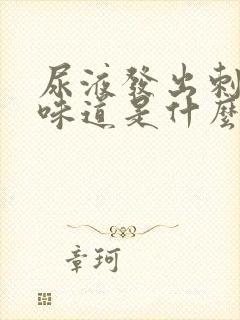 尿液發出刺
味道是什麼
章珂